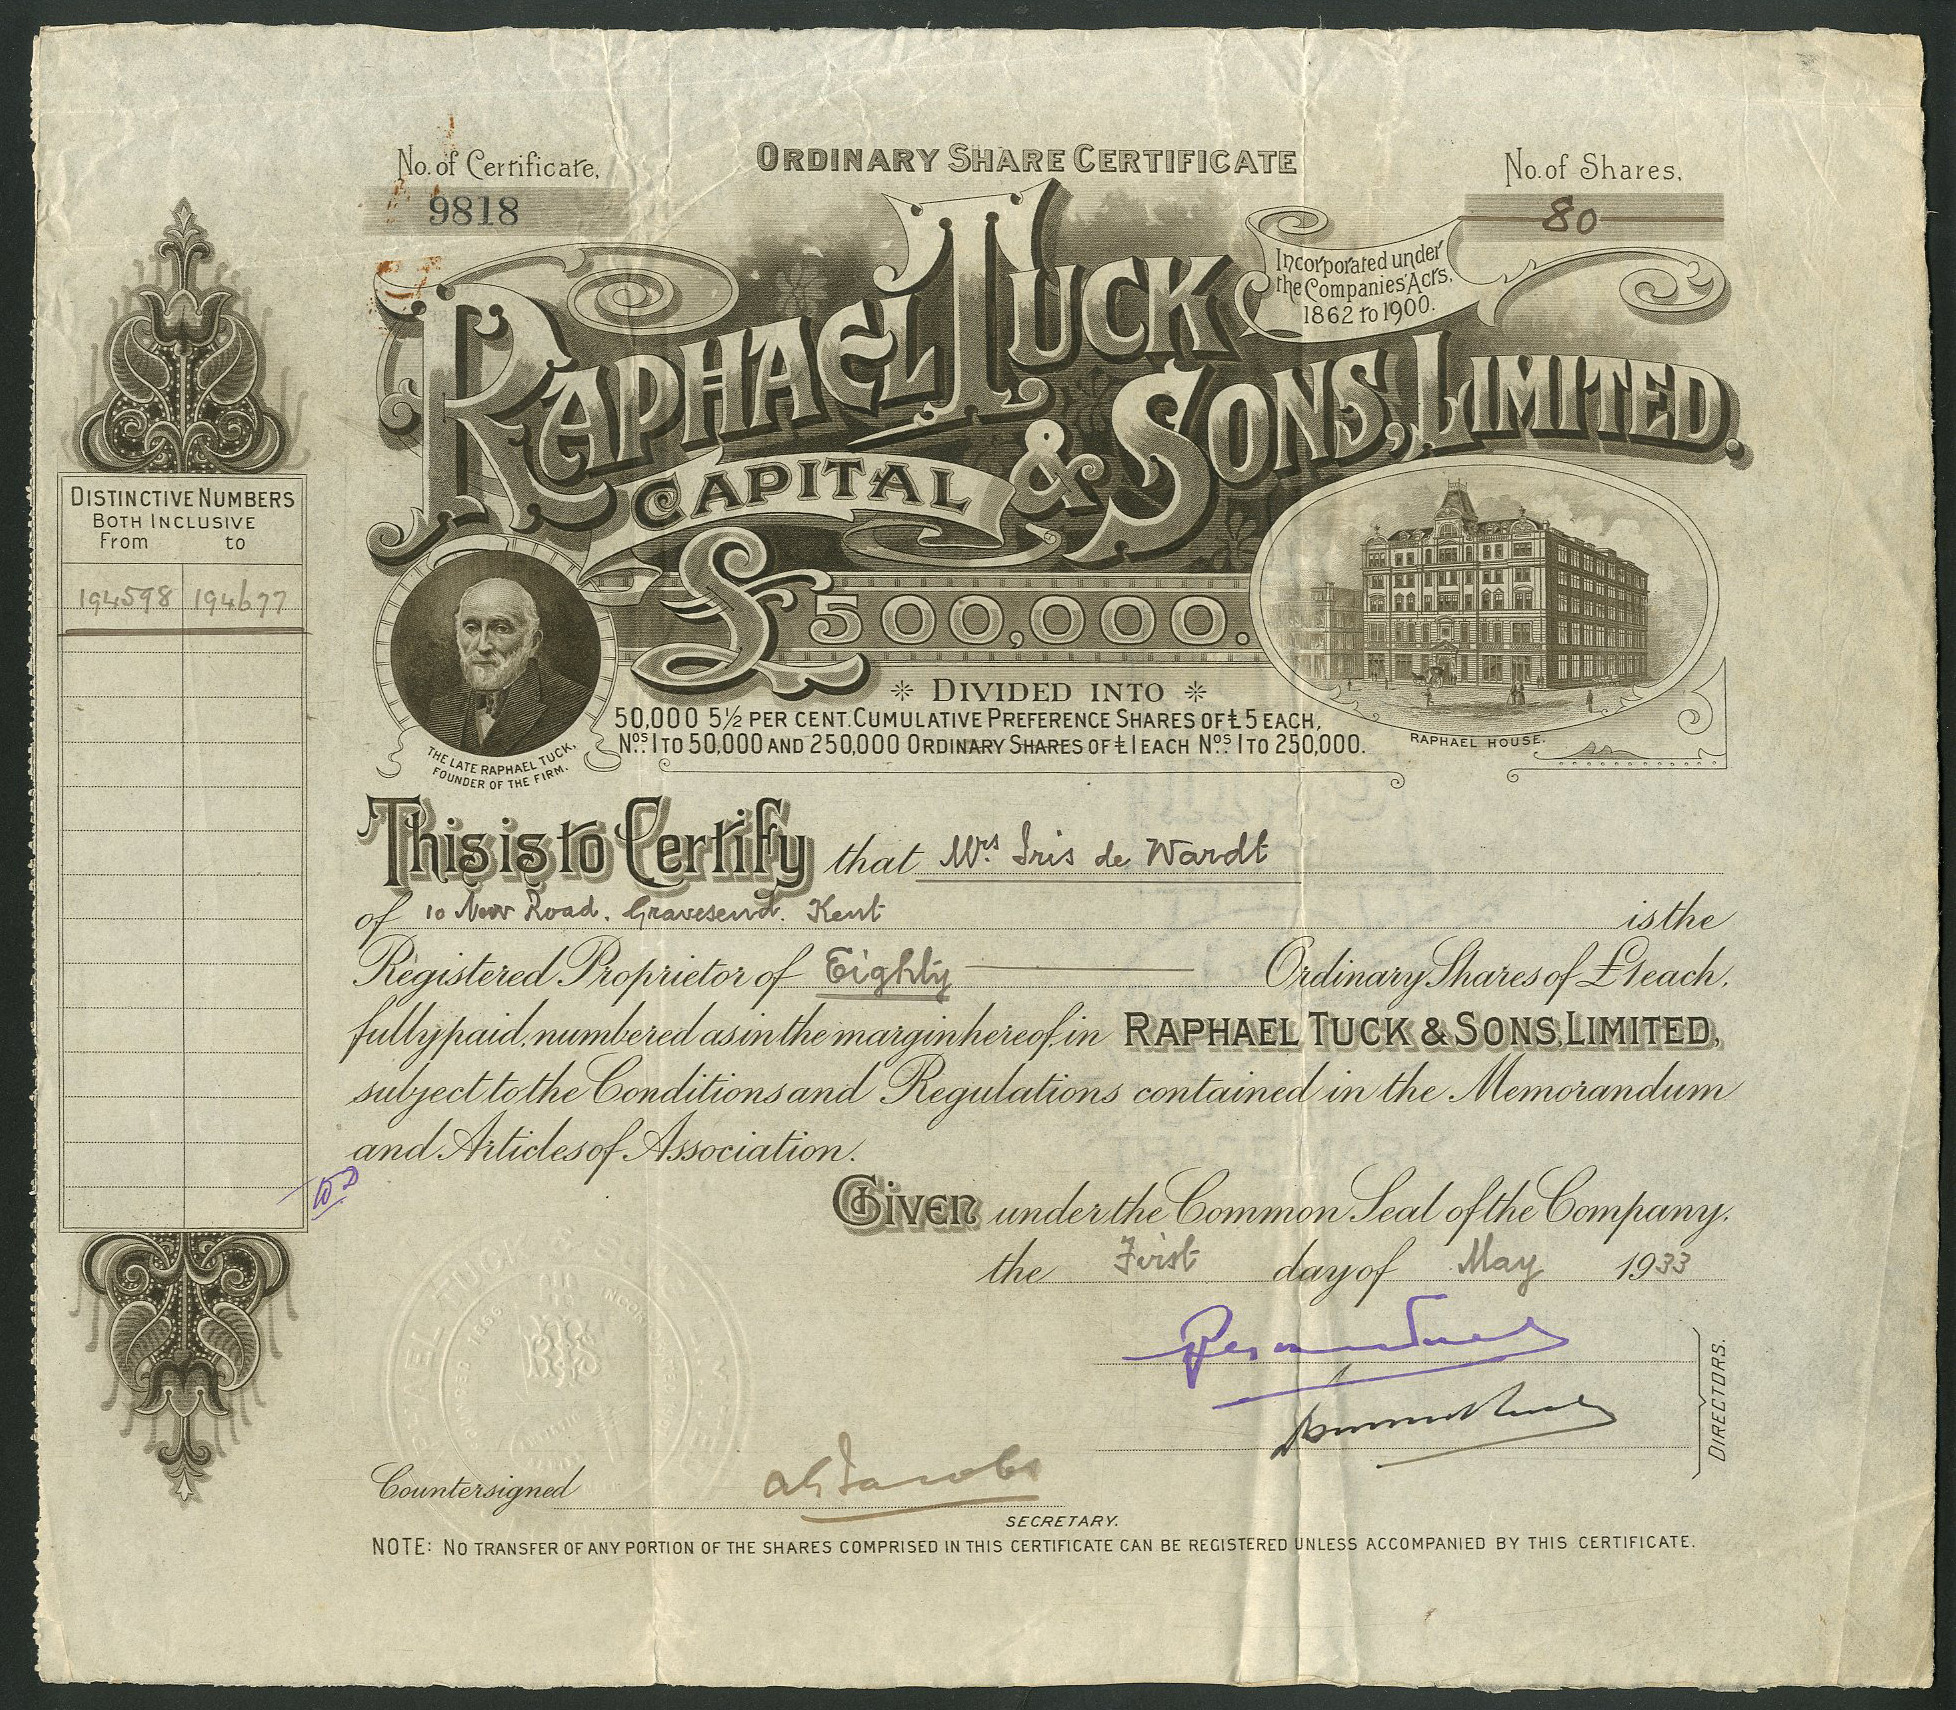 No. of Certificate,
9818
ORDINARY SHARE CERTIFICATE
No. of Shares,
80
RAPHAEL TUCK
& SONS, LIMITED.
Incorporated under
the Companies' Acts,
1862 to 1900.
CAPITAL
£500,000.
DIVIDED INTO
50,000 5½ PER CENT. CUMULATIVE PREFERENCE SHARES OF £5 EACH,
Nos. 1 TO 50,000 AND 250,000 ORDINARY SHARES OF £1 EACH Nos. 1 TO 250,000.
THE LATE RAPHAEL TUCK,
FOUNDER OF THE FIRM.
RAPHAEL HOUSE.
DISTINCTIVE NUMBERS
BOTH INCLUSIVE
From to
194598 194677
This is to Certify that Mrs Iris de Wardt
of 10 New Road, Gravesend. Kent is the
Registered Proprietor of Eighty Ordinary Shares of £1 each,
fully paid, numbered as in the margin hereof, in RAPHAEL TUCK & SONS, LIMITED,
subject to the Conditions and Regulations contained in the Memorandum
and Articles of Association.
GIVEN under the Common Seal of the Company,
the First day of May 1933
DIRECTORS.
Countersigned
SECRETARY.
NOTE: NO TRANSFER OF ANY PORTION OF THE SHARES COMPRISED IN THIS CERTIFICATE CAN BE REGISTERED UNLESS ACCOMPANIED BY THIS CERTIFICATE.